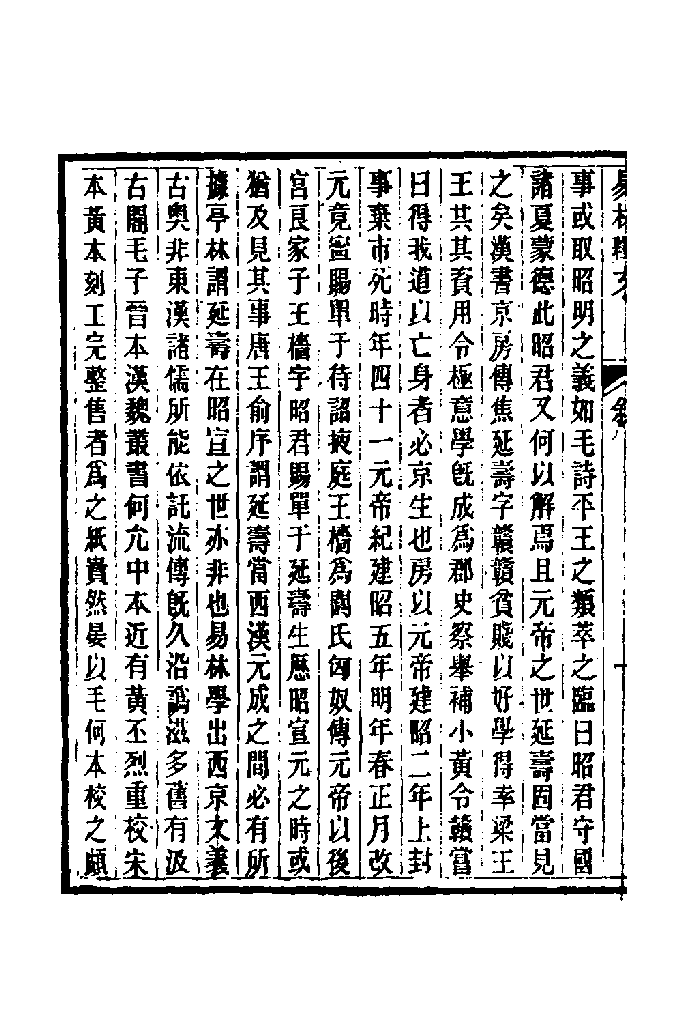 易林釋文
事或取昭明之義如毛詩平王之類萃之臨曰昭君守國
諸夏蒙德此昭君又何以解焉且元帝之世延壽固當見
之矣漢書京房傳焦延壽字贛贛貧賤以好學得幸梁王
王共其資用令極意學旣成爲郡史察舉補小黃令贛嘗
曰得我道以亡身者必京生也房以元帝建昭二年上封
事棄市死時年四十一元帝紀建昭五年明年春正月改
元竟寧賜單于待詔掖庭王檣爲閼氏匈奴傳元帝以後
宮良家子王檣字昭君賜單于延壽生歷昭宣元之時或
猶及見其事唐王俞序謂延壽當西漢元成之間必有所
據亭林謂延壽在昭宣之世亦非也易林學出西京文義
古奧非東漢諸儒所能依託流傳旣久沿譌滋多舊有汲
古閣毛子晉本漢魏叢書何允中本近有黃丕烈重校宋
本黃本刻工完整售者爲之紙貴然晏以毛何本校之頗